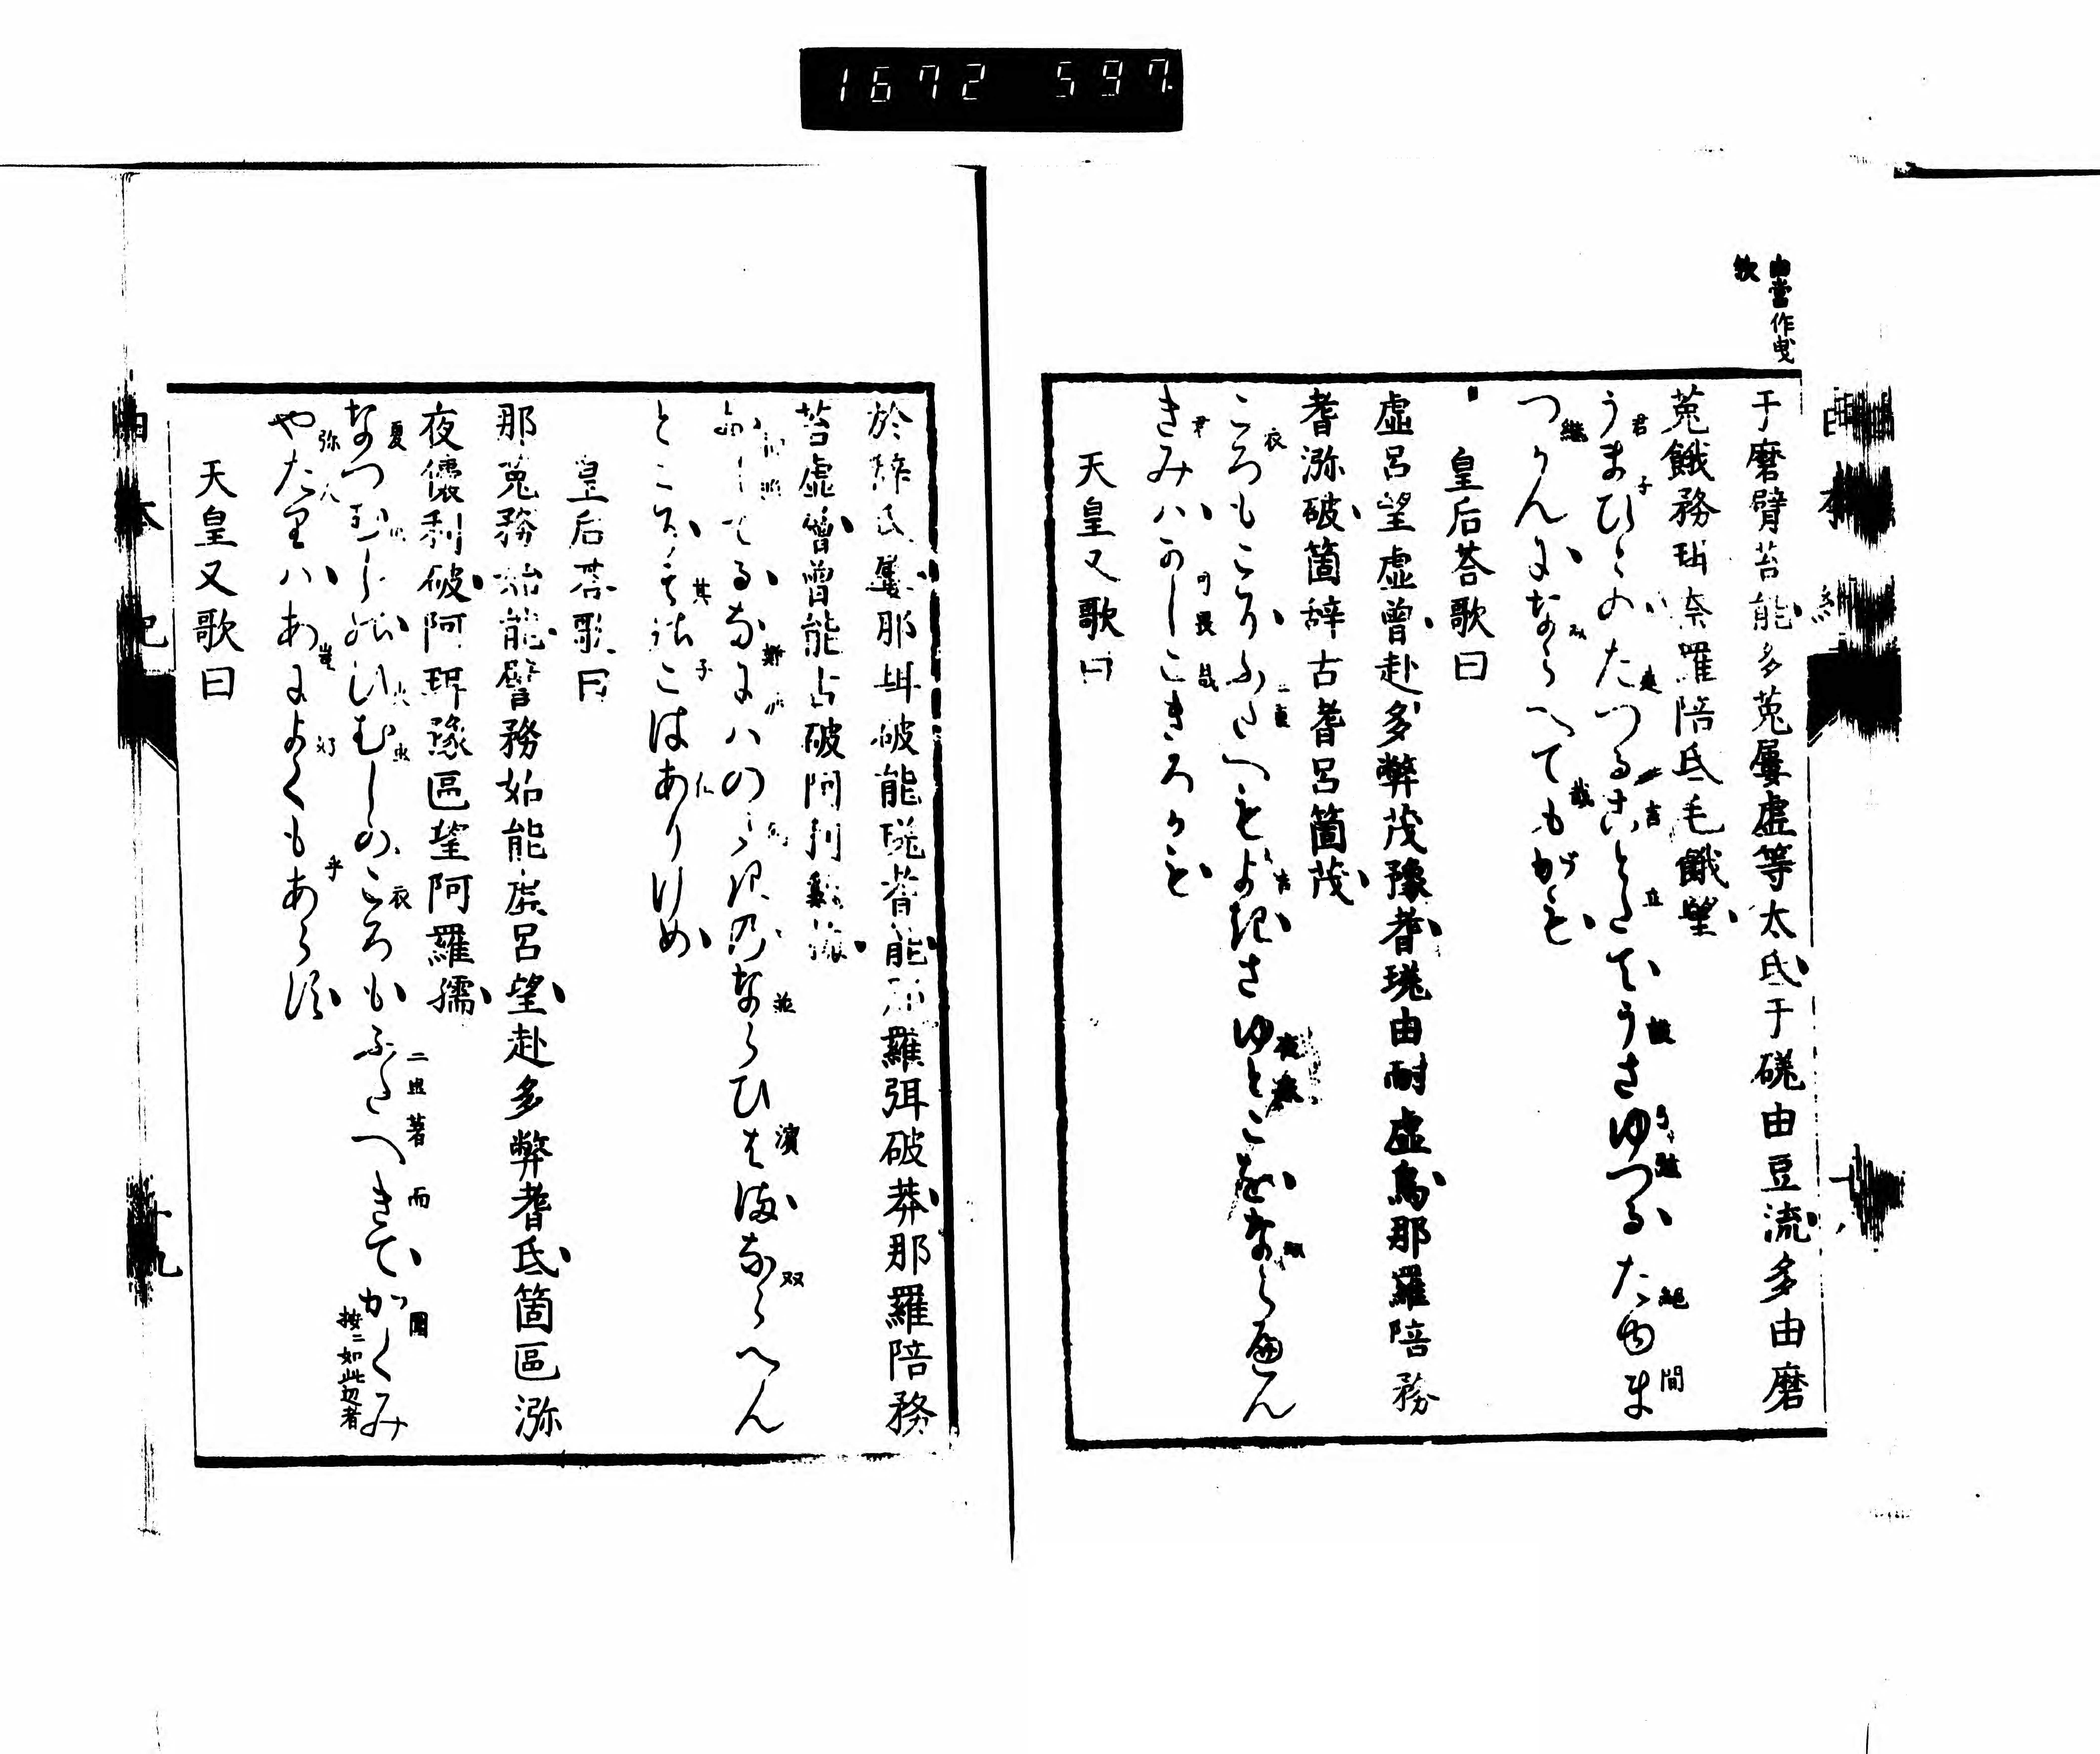 1672 597.
由當作曳
歟
于磨臂苔能多菟屢虛等太氐于磋由豆流多由磨
菟餓務珥奈羅陪氐毛餓望
うまひとのたつることたてうさゆつるたゆま
つかんにならへてもがも
皇后荅歌曰
虛呂望虛曾赴多弊茂豫耆瑳由耐虛烏那羅陪務
耆瀰破箇辞古耆呂箇茂
ころもこそふたへもよきさゆとこをならへん
きみハかしこきろかも
天皇又歌曰
於辭氐屢那珥破能瑳耆能那羅弭破莽那羅陪務
苔虛曾曾能古破阿利鷄梅
おしてるなにハのさきのならひはまならへん
とこそそのこはありけめ
皇后荅歌曰
那菟務始能譬務始能虛呂望赴多弊耆氐箇區瀰
夜儾利破阿珥豫區望阿羅孺
なつむしのひむしのころもふたへきてかくみ
按二如此辺者
やたりハあによくもあらす
天皇又歌曰